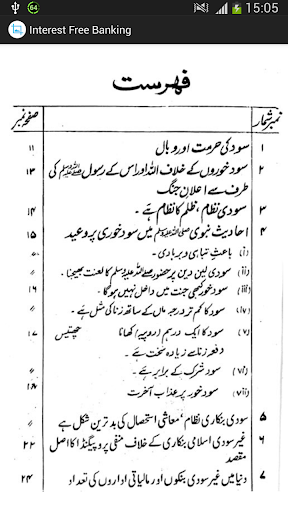 64 15:05
Interest Free Banking
فہرست
نمبر شمار صفحہ نمبر
۱ سود کی حرمت اور وبال ۱۱
۲ سود خوروں کے خلاف اللہ اور اس کے رسول ﷺ کی ۱۳
طرف سے اعلان جنگ
۳ سودی نظام، ظلم کا نظام ہے ۔ ۱۴
۴ احادیث نبوی ﷺ میں سود خوری پر وعید ۱۵
(i) باعثِ تباہی و بربادی ۔ 〃
(ii) سودی لین دین پر حضور صلی اللہ علیہ وسلم کا لعنت بھیجنا ۔ 〃
(iii) سود خور کبھی جنت میں داخل نہیں ہو گا ۔ ۱۶
(iv) سود کا کم تر درجہ ماں کے ساتھ زنا کی مثل ہے ۔ 〃
(v) سود کا ایک درہم (روپیہ) کھانا چھتیس ۱۷
دفعہ زنا سے زیادہ سخت ہے ۔
(vi) سود شرک کے برابر ہے ۔ 〃
(vii) سود خور پر عذاب آخرت 〃
۵ سودی بنکاری نظام، معاشی استحصال کی بد ترین شکل ہے 〃
۶ غیر سودی اسلامی بنکاری کے خلاف منفی پروپیگنڈا کا اصل ۲۲
مقصد
۷ دنیا میں غیر سودی بنکوں اور مالیاتی اداروں کی تعداد ۲۴